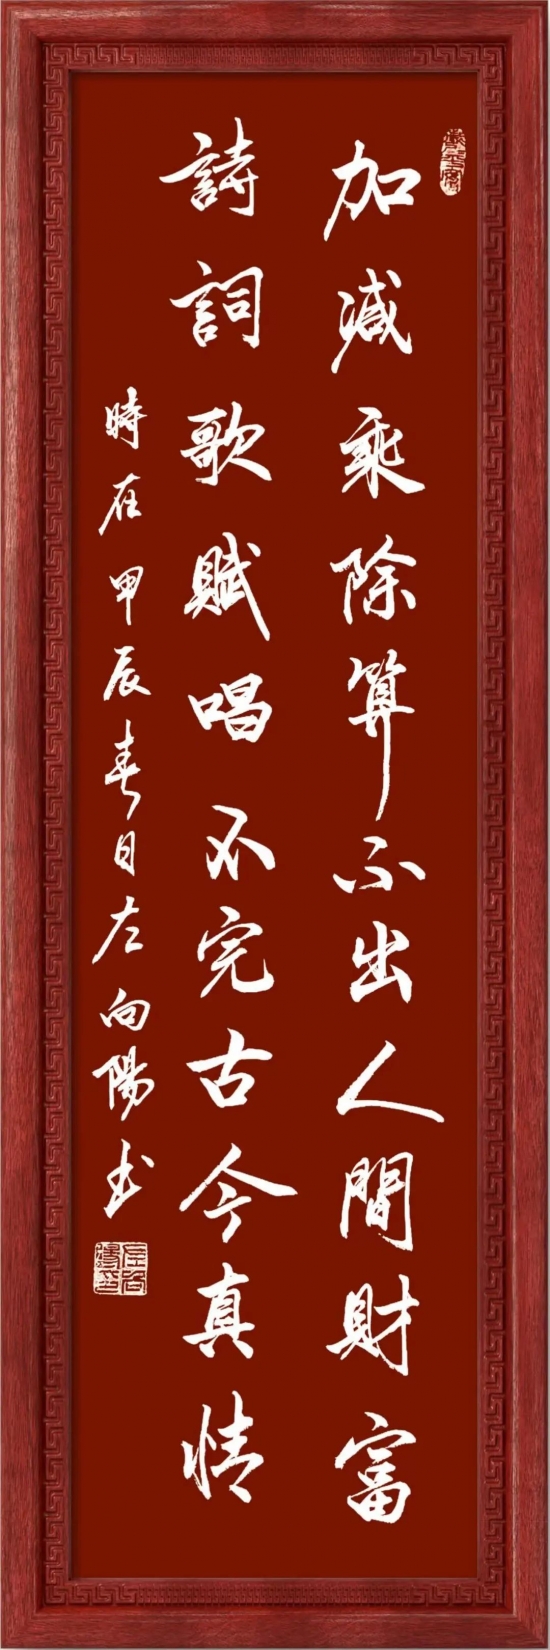 加減乘除算不出人間財富
詩詞歌賦唱不完古今真情
時在甲辰春日左向陽书